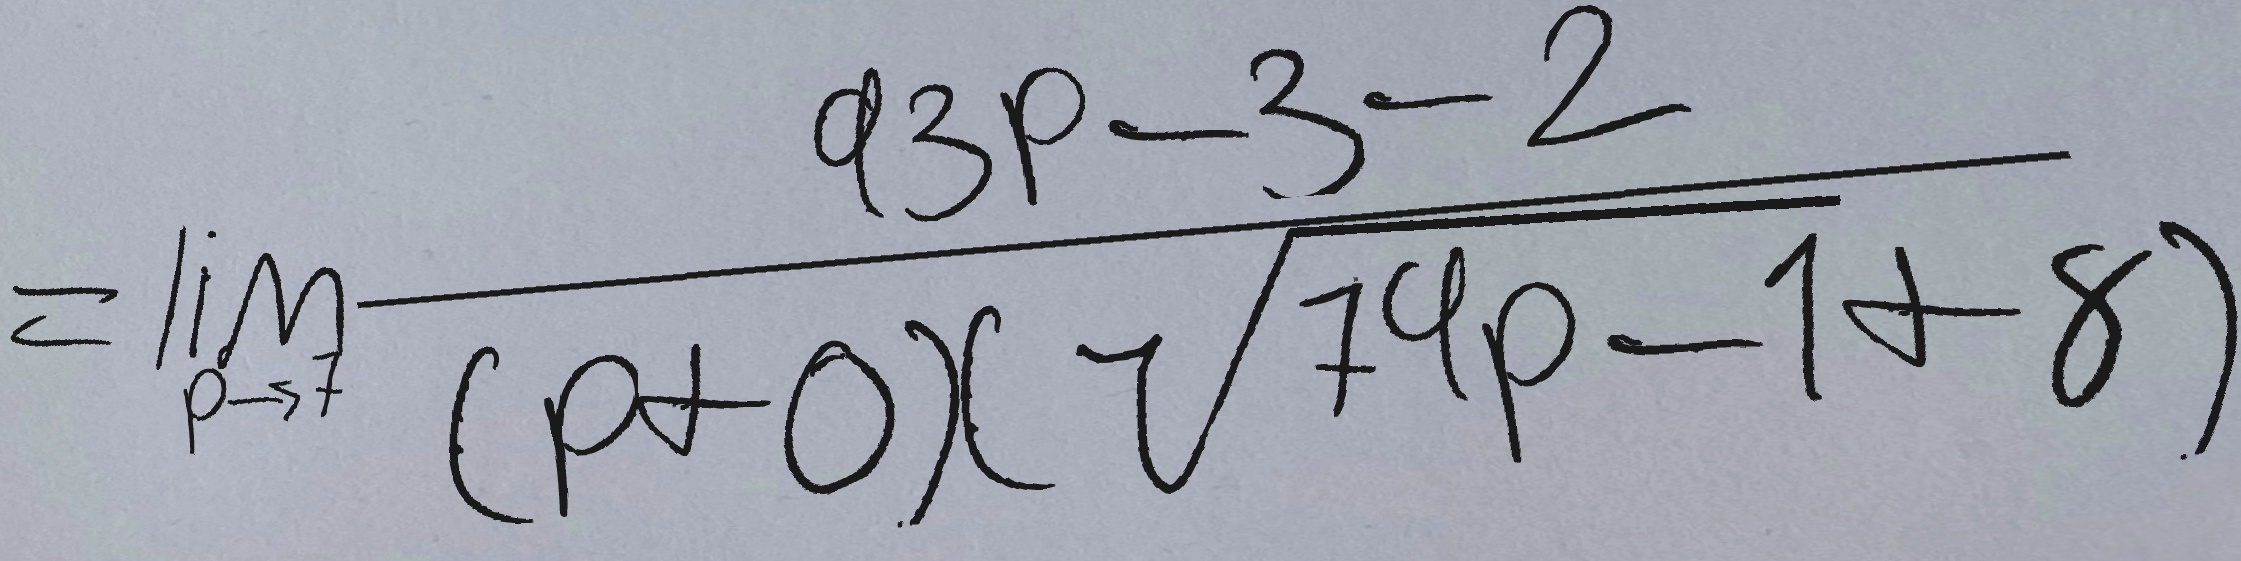 = \lim_{p \to 7} \frac{93p - 3 - 2}{(p + 0)(\sqrt{79p - 1} + 8)}